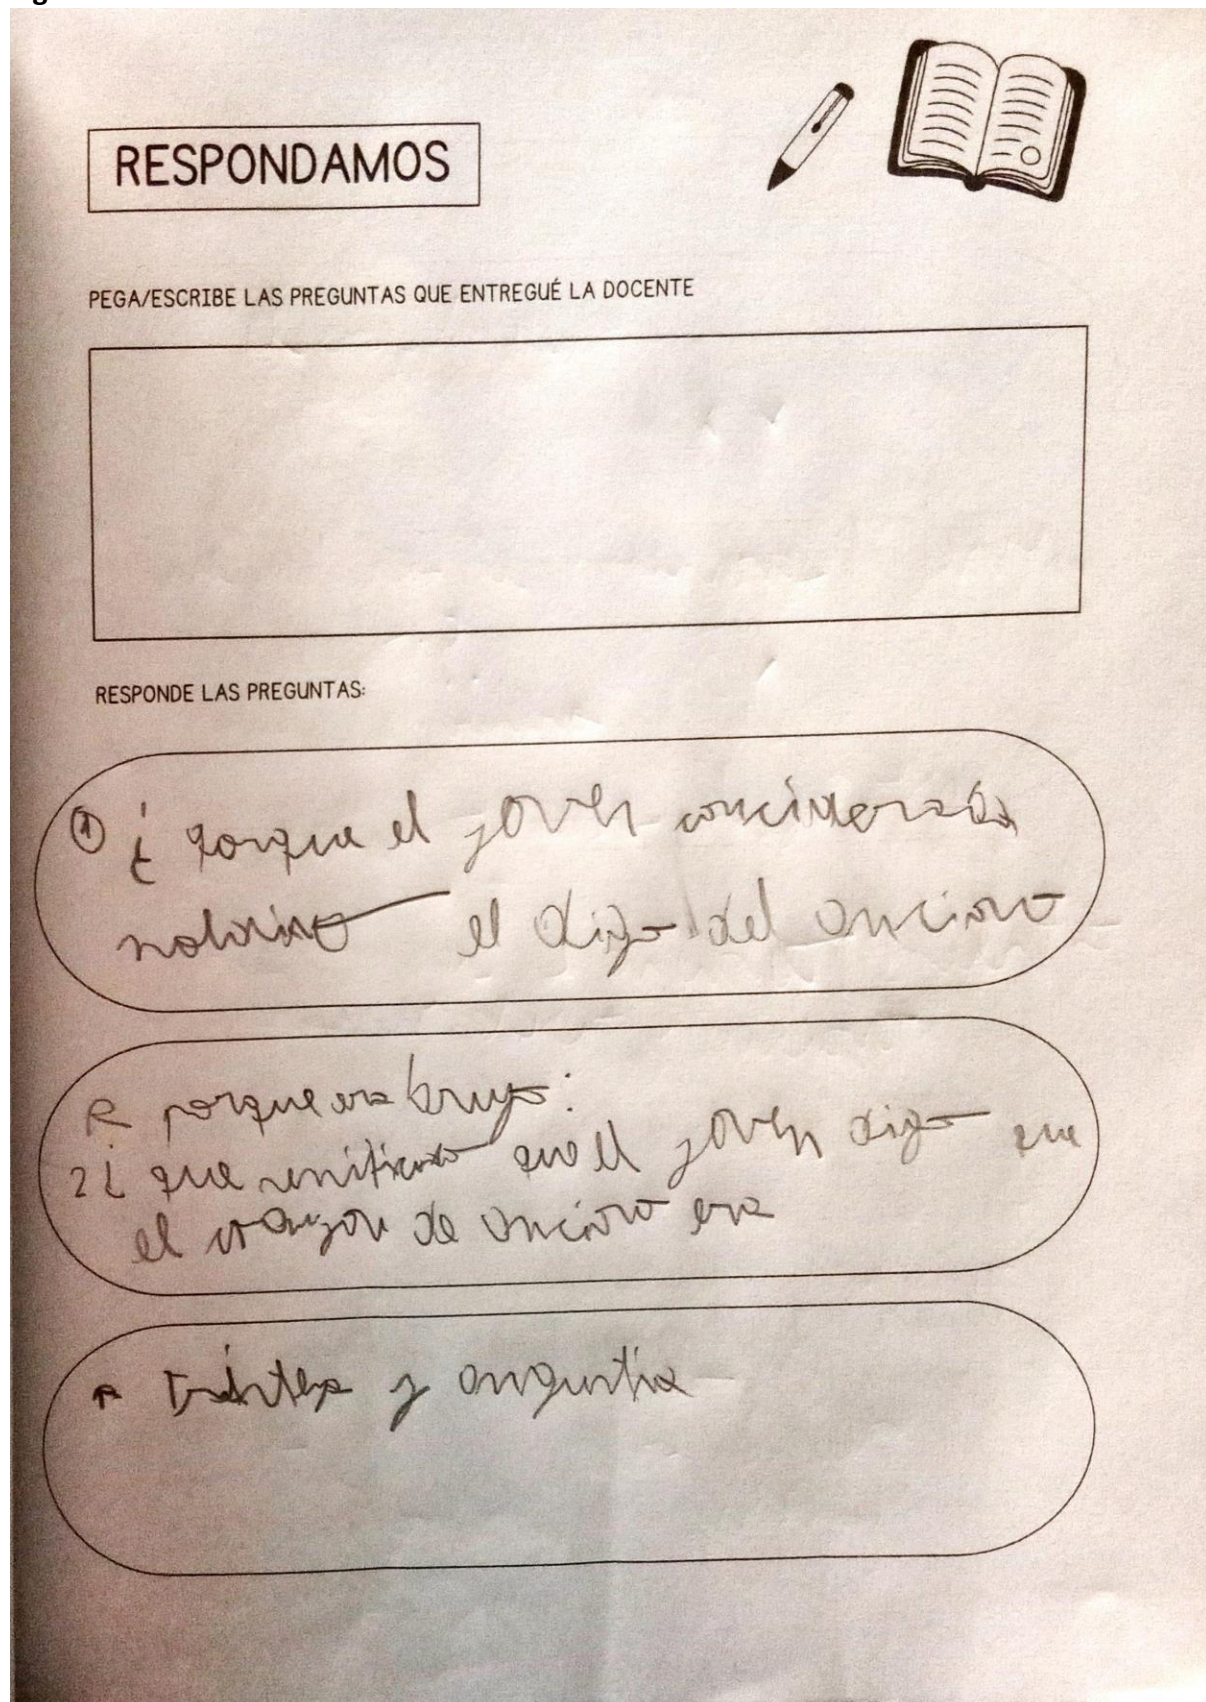 RESPONDAMOS
PEGA/ESCRIBE LAS PREGUNTAS QUE ENTREGUÉ LA DOCENTE
RESPONDE LAS PREGUNTAS:
① ¿ porque el joven conciderada
el digo del anciano
R porque era brujo:
2 ¿ que el joven digo que
el corazon de anciano era
R y angustia